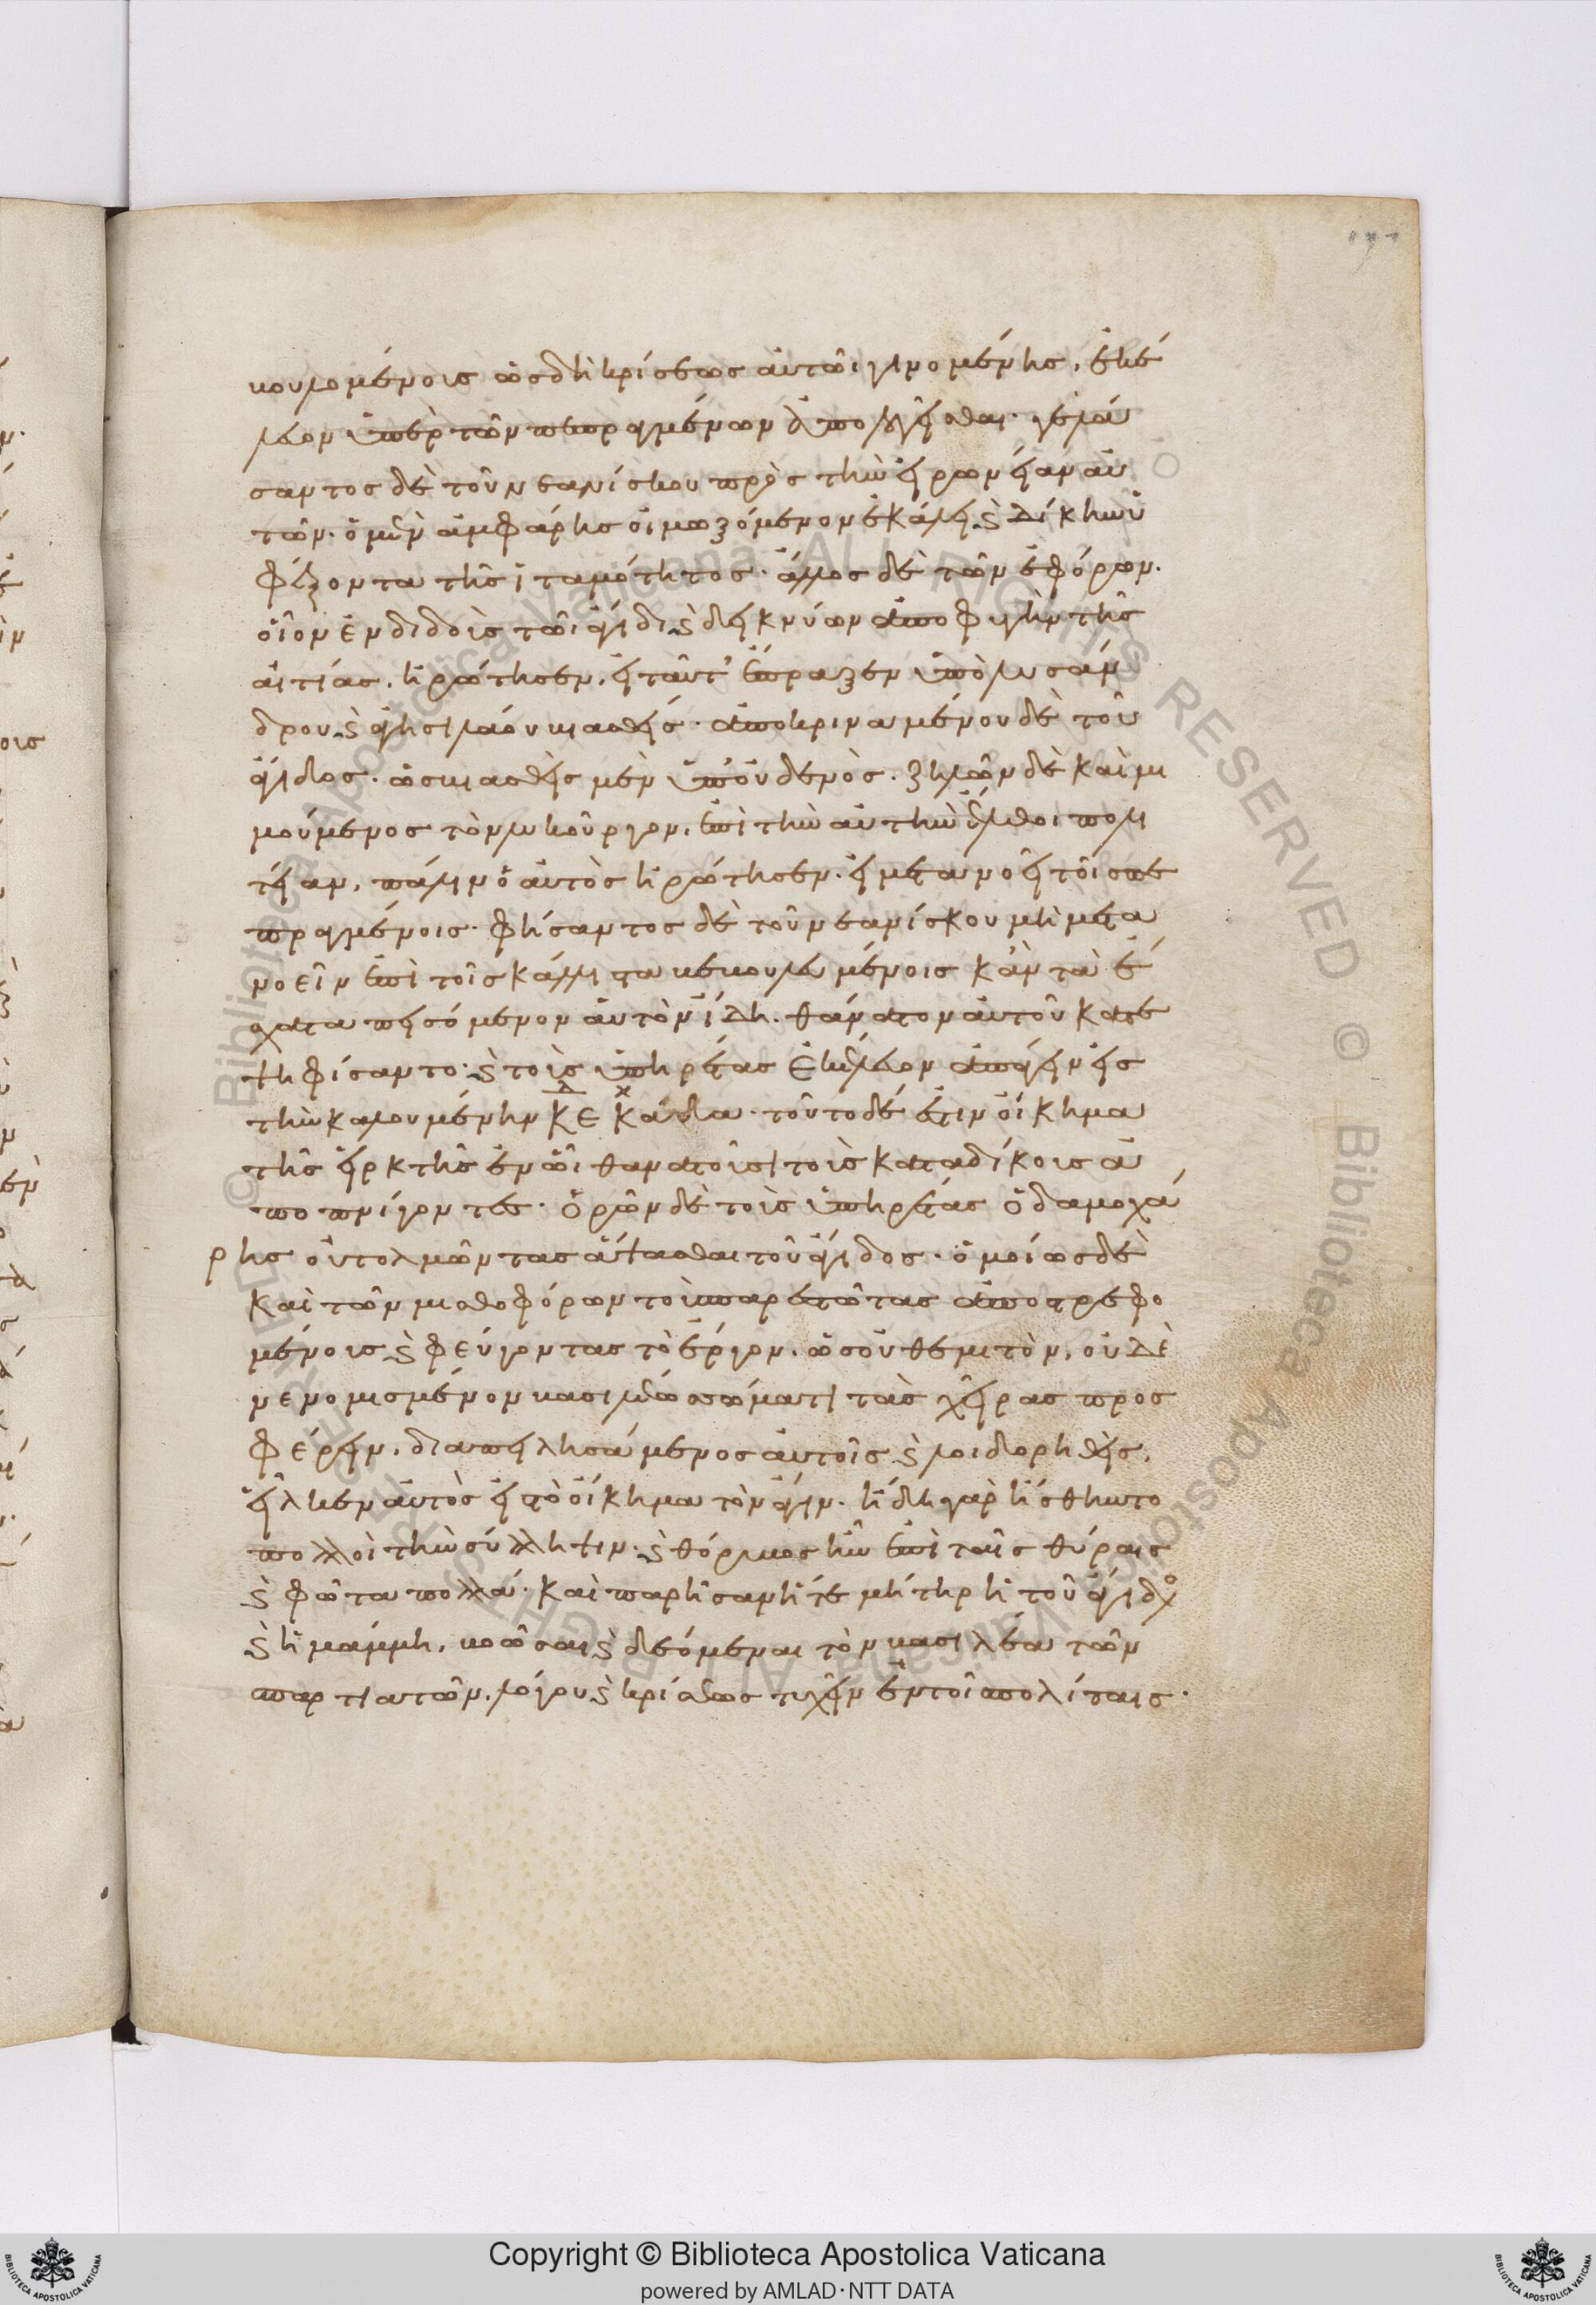 βουλομένους ὡς δὴ κρίσεως αὐτῶι γινομένης, ἐκέ
λευον ὑπὲρ τῶν πεπραγμένων ἀπολογεῖσθαι· γελά
σαντος δὲ τοῦ νεανίσκου πρὸς τὴν εἰρωνείαν αὐ
τῶν. ὁ μὲν ἀμφάρης οἰμωξόμενον ἐκάλει ϗ δίκην ὑ
φέξοντα τῆς ἰταμότητος· ἄλλος δὲ τῶν ἐφόρων.
οἷον ἐνδιδοὺς τῶι ἄγιδι ϗ δεικνύων ἀποφυγὴν τῆς
αἰτίας, ἠρώτησεν, εἰ ταῦτ' ἔπραξεν ὑπὸ λυσάν
δρου ϗ ἀγησιλάου βιασθείς· ἀποκριναμένου δὲ τοῦ
ἄγιδος· ὡς βιασθεὶς μὲν ὑπ' οὐδενὸς. ζηλῶν δὲ καὶ μι
μούμενος τὸν λυκοῦργον, ἐπὶ τὴν αὐτὴν ἔλθοι πολι
τείαν, πάλιν ὁ αὐτὸς ἠρώτησεν. εἰ μετανοεῖ τοῖς πε
πραγμένοις· φήσαντος δὲ τοῦ νεανίσκου μὴ μετα
νοεῖν ἐπὶ τοῖς κάλλιστα βεβουλευμένοις κἂν τὰ ἔσ
χατα πεισόμενον αὐτὸν ἴδη. θάνατον αὐτοῦ κατε
ψηφίσαντο· ϗ τοὺς ὑπηρέτας ἐκέλευον ἀπάγειν εἰς
τὴν καλουμένην κεκάδα· τοῦτο δέ ἐστιν οἴκημα
τῆς εἱρκτῆς ἐν ὧι θανατοῦσι τοὺς καταδίκους ἀ
ποπνίγοντες· ὁρῶν δὲ τοὺς ὑπηρέτας ὁ δαμοχά
ρης οὐ τολμῶντας ἅψασθαι τοῦ ἄγιδος· ὁμοίως δὲ
καὶ τῶν μισθοφόρων τοὺς παρεστῶτας ἀποτρεφο
μένους ϗ φεύγοντας τὸ ἔργον, ὡς οὐ θεμιτὸν, οὐδὲ
νενομισμένον βασιλέως σώματι τὰς χεῖρας προς
φέρειν, διαπειλησάμενος αὐτοῖς ϗ λοιδορηθεὶς,
εἷλκεν αὐτὸς εἰς τὸ οἴκημα τὸν ἄγιν. ἤδη γὰρ ἤσθηντο
πολλοὶ τὴν σύλληψιν· ϗ θόρυβος ἦν ἐπὶ ταῖς θύραις
ϗ φῶτα πολλά· καὶ παρῆσαν ἥ τε μήτηρ ἡ τοῦ ἄγιδος
ϗ ἡ μάμμη, βοῶσαι ϗ δεόμεναι τὸν βασιλέα τῶν
σπαρτιατῶν, λόγου ϗ κρίσεως τυχεῖν ἐν τοῖς πολίταις·